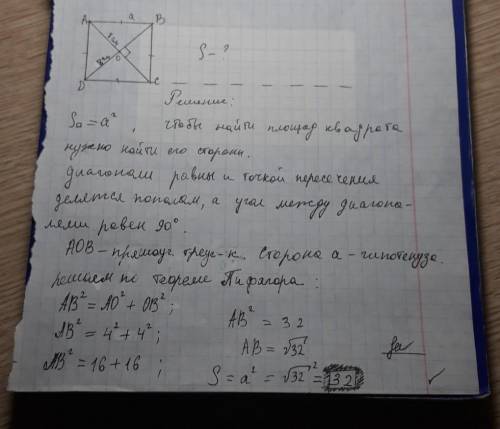 A a B
8см
8см
O
D C
S - ?
Решение:
S□ = a², чтобы найти площад квадрата
нужно найти его стороны.
Диагонали равны и точкой пересечения
делятся пополам, а угол между диагона-
лями равен 90°.
AOB – прямоуг. треуг-к. Сторона a - гипотенуза.
решаем по теореме Пифагора:
AB² = AO² + OB²;
AB² = 4² + 4²;
AB² = 16 + 16 ;
AB² = 32
AB = √32
S = a² = √32² = 32